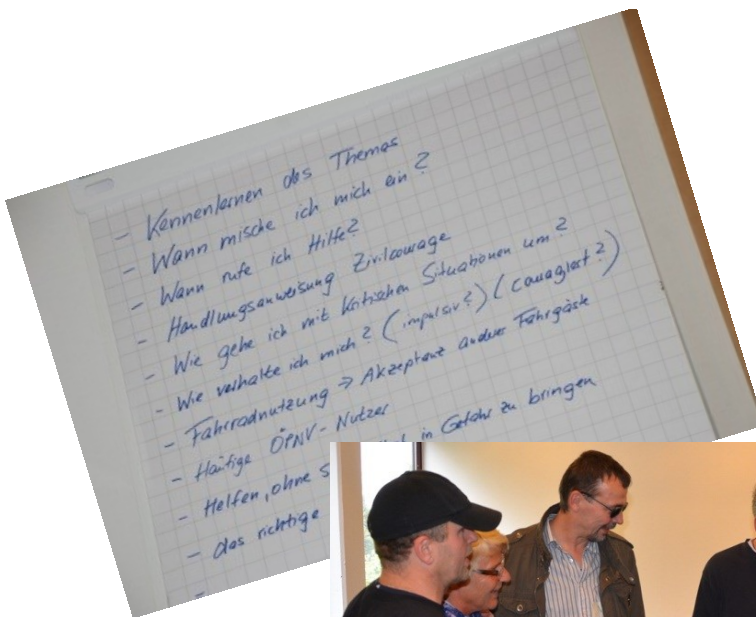 - Kennenlernen des Themas
- Wann mische ich mich ein?
- Wann rufe ich Hilfe?
- Handlungsanweisung Zivilcourage
- Wie gehe ich mit kritischen Situationen um?
- Wie verhalte ich mich? (impulsiv?) (couragiert?)
- Fahrradnutzung → Akzeptanz anderer Fahrgäste
- Häufige ÖPNV-Nutzer
- Helfen, ohne in Gefahr zu bringen
- das richtige